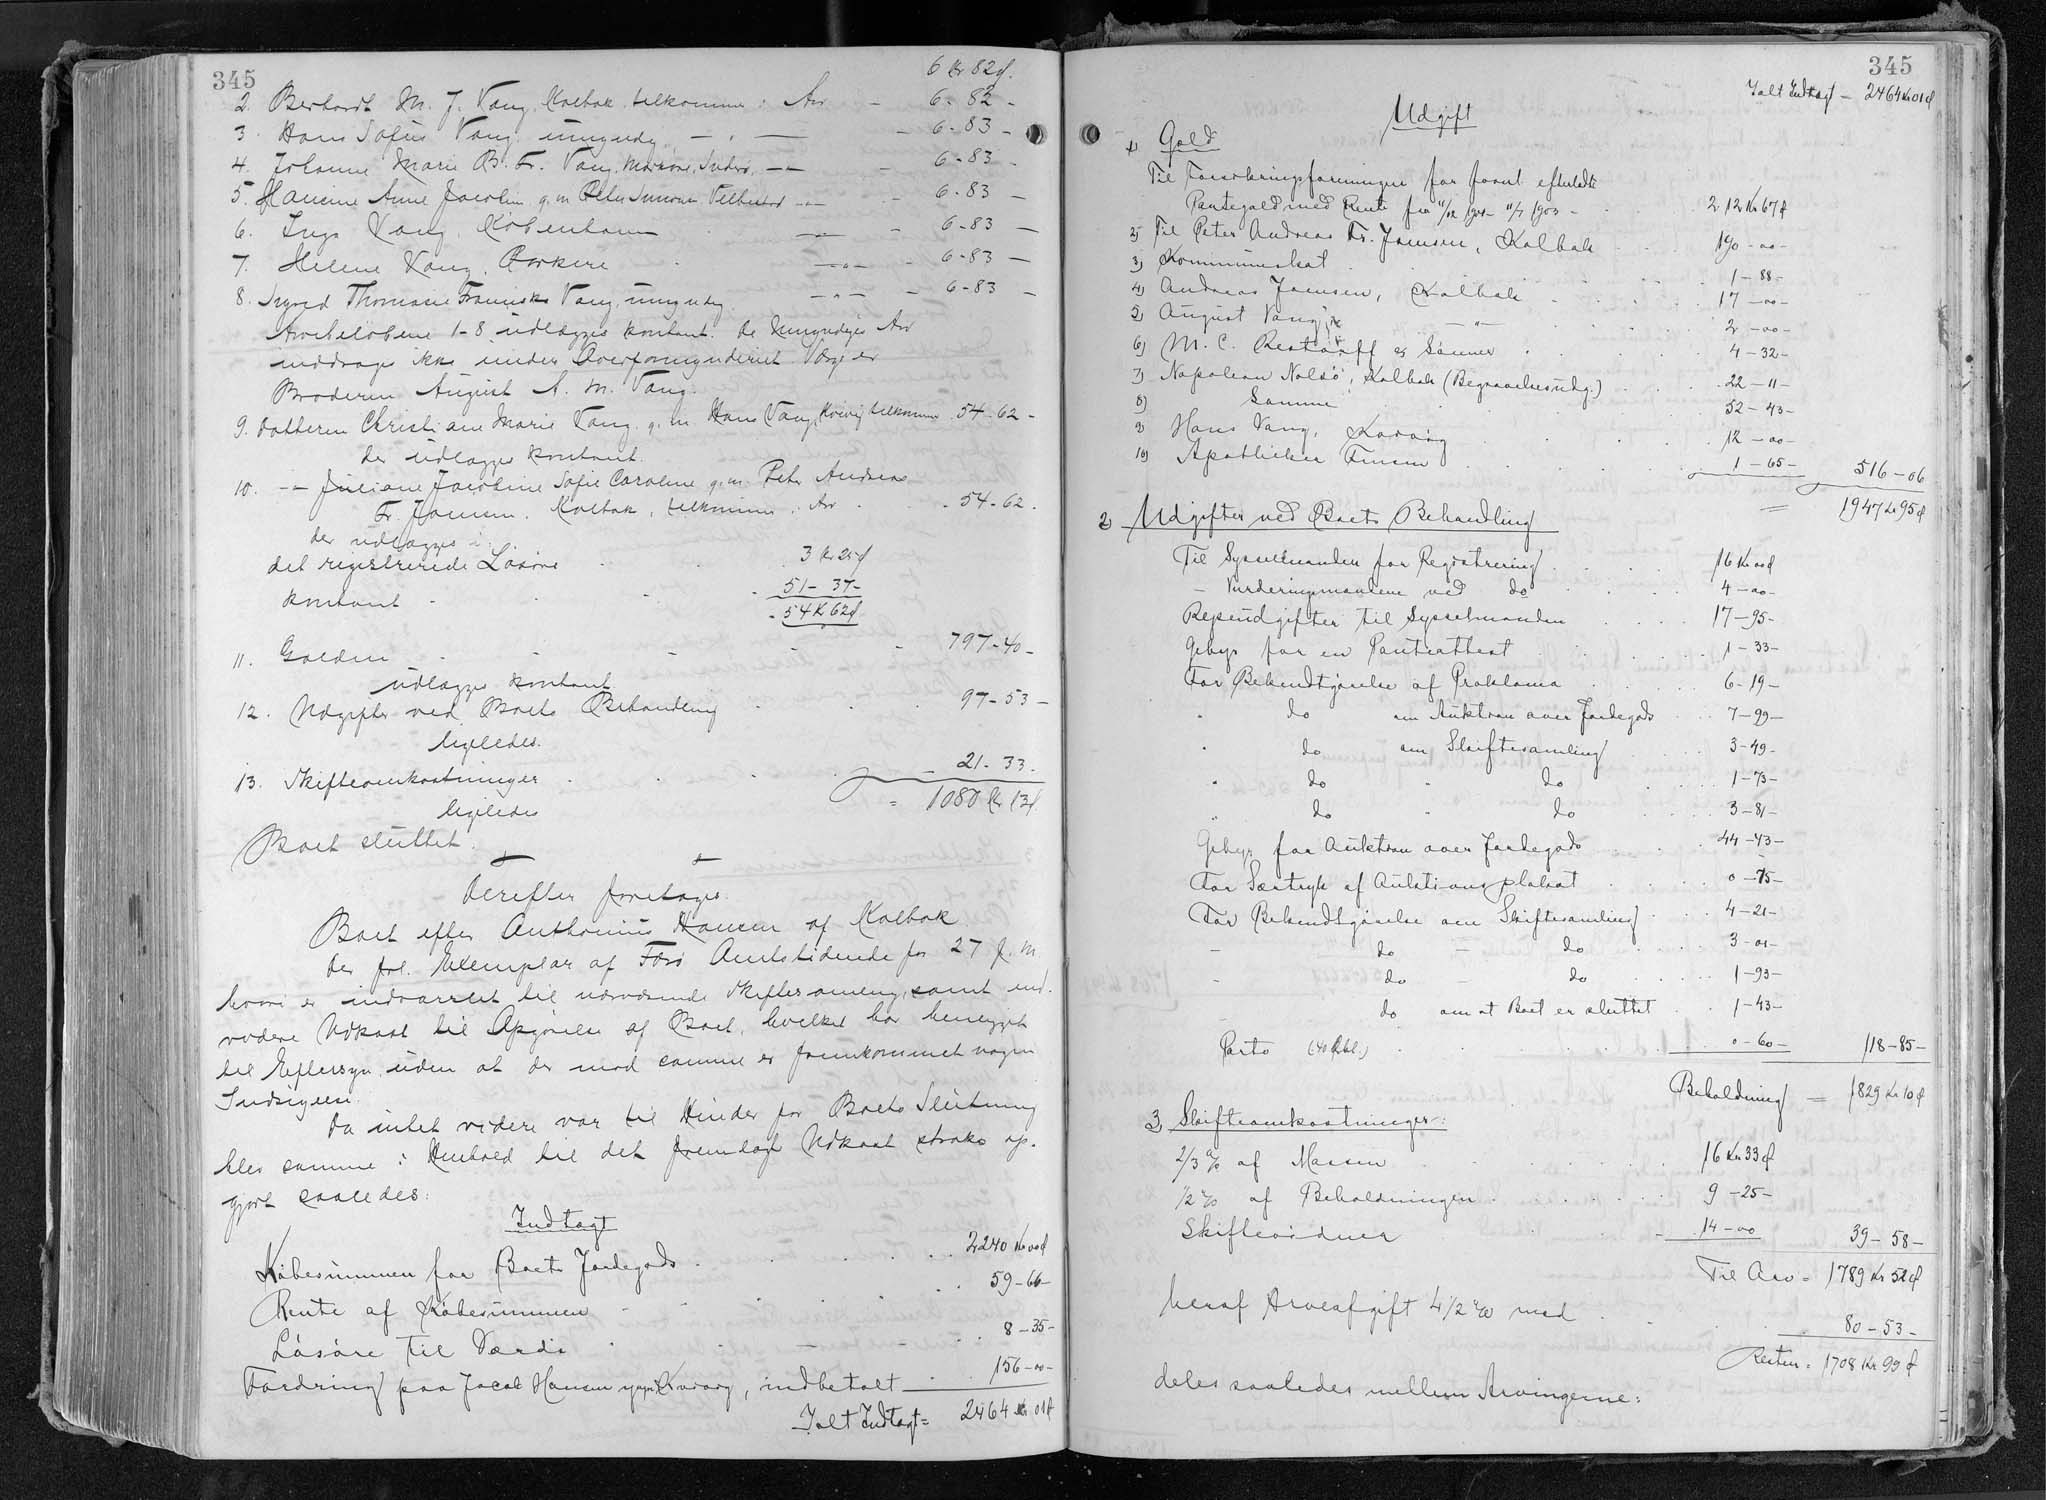 345
6 Kr 82 ø.
2. Berhardt M. J. Vang, Kalbak, tilkommer i Arv - 6 - 82 -
3. Hans Sofus Vang, umyndig - " - - 6 - 83 -
4. Johanne Marie B. Fr. Vang, - " - - 6 - 83 -
5. Hansine Anne Jacobine g. m. Peter Simonsen, Velbestad - " - - 6 - 83 -
6. Inga Vang, København - " - - 6 - 83 -
7. Helene Vang, - " - - 6 - 83 -
8. Ingrid Thomasie Franciska Vang, umyndig - " - - 6 - 83 -
Arvebeløbene 1-8 udlægges kontant. De Umyndiges Arv
inddrages ikke under Overformynderiet. Værge er
Broderen August A. M. Vang.
9. Datteren Christiane Marie Vang g. m. Hans Vang, tilkommer 54 - 62 -
der udlægges kontant.
10. - " - Juliane Jacobine Sofie Caroline g. m. Peter Andreas
Fr. Joensen, Kalbak, tilkommer i Arv . . 54 - 62 .
der udlægges i
det registrerede Løsøre . . 3 Kr 25 ø
kontant . . . 51 - 37 -
- 54 K 62 ø
11. Gælden - - - - - 797 - 40 -
udlægges kontant
12. Udgifter ved Boets Behandling . . . 97 - 53 -
ligeledes.
13. Skifteomkostninger . . . . - 21 - 33 .
ligeledes
= 1080 Kr 13 ø
Boet sluttet.
Derefter foretages
Boet efter Anthonius Hansen af Kalbak
Der frl. Exemplar af Færø Amtstidende for 27 f. M.
hvori er indvarslet til nærværende Skiftesamling, samt end-
videre Udkast til Opgørelse af Boet, hvilket har henligget
til Eftersyn, uden at der mod samme er fremkommet nogen
Indsigelse.
Da intet videre var til Hinder for Boets Slutning
blev samme i Henhold til det fremlagte Udkast straks op-
gjort saaledes:
Indtægt
Købesummen for Boets Jordegods . . . . . 2240 Kr 00 ø
Rente af Købesummen - - . . . . 59 - 66 -
Løsøre til Værdi . . - - . . 8 - 35 -
Fordring paa Jacob Hansen, indbetalt . . 156 - 00 -
Ialt Indtægt = 2464 Kr 01 ø
345
Ialt Indtægt - 2464 Kr 01 ø
Udgift
1) Gæld
Til Forsikringsforeningen for foran efterladte
Pantegæld med Rente fra 11/12 1901 - 11/7 1903 - . . 212 Kr 67 ø
2) Til Peter Andreas Fr. Joensen, Kalbak . . . 190 - 00 -
3) Kommuneskat . . 1 - 88 -
4) Andreas Joensen, Kalbak . . . . 17 - 00 -
5) August Vang, - " - . . . . 2 - 00 -
6) M. C. Restorff & Sønner . . . . 4 - 32 -
7) Napoleon Nolsø, Kalbak (Begravelsesudg.) . . . 22 - 11 -
8) Samme . . . 52 - 43 -
9) Hans Vang, . . . . 12 - 00 -
10) Apotheker Finsen . . . . 1 - 65 - 516 - 06
= 1947 Kr 95 ø
2) Udgifter ved Boets Behandling
Til Sysselmanden for Registrering . . . . 16 Kr 00 ø
- Vurderingsmændene ved do . . . . 4 - 00 -
Rejseudgifter til Sysselmanden . . . . 17 - 95 -
Gebyr for en Panteattest . . . . 1 - 33 -
For Bekendtgørelse af Proklama . . . . 6 - 19 -
" do om Auktion over Jordegods . . . 7 - 99 -
" do om Skiftesamling . . . 3 - 49 -
" do " do . . . . 1 - 73 -
" do " do . . . . 3 - 81 -
Gebyr for Auktion over Jordegods . . . 44 - 43 -
For Særtryk af Auktionsplakat . . . . 0 - 75 -
For Bekendtgørelse om Skiftesamling . . . 4 - 21 -
- do - do . . . . 3 - 01 -
- do - do . . . . 1 - 93 -
- do om at Boet er sluttet . . 1 - 43 -
Porto . . . . 0 - 60 - 118 - 85 -
Beholdning = 1829 Kr 10 ø
3) Skifteomkostninger:
2/3 % af Massen . . . . 16 Kr 33 ø
1/2 % af Beholdningen . . . . 9 - 25 -
Skiftevidner . . . 14 - 00 39 - 58 -
Til Arv = 1789 Kr 52 ø
heraf Arveafgift 4 1/2 % med . . . 80 - 53 -
Resten = 1708 Kr 99 ø
deles saaledes mellem Arvingerne: